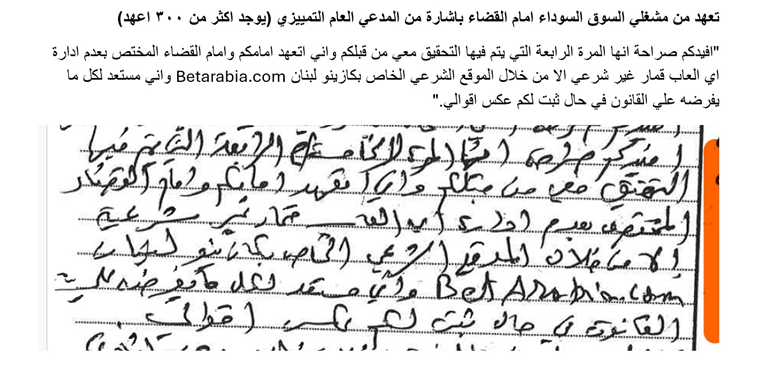 تعهد من مشغلي السوق السوداء امام القضاء باشارة من المدعي العام التمييزي (يوجد اكثر من ٣٠٠ اعهد)
"افيدكم صراحة انها المرة الرابعة التي يتم فيها التحقيق معي من قبلكم واني اتعهد امامكم وامام القضاء المختص بعدم ادارة
اي العاب قمار غير شرعي الا من خلال الموقع الشرعي الخاص بكازينو لبنان Betarabia.com واني مستعد لكل ما
يفرضه علي القانون في حال ثبت لكم عكس اقوالي."
افيدكم صراحة انها المرة الرابعة التي يتم فيها
التحقيق معي من قبلكم واني اتعهد امامكم وامام القضاء
المختص بعدم ادارة اي العاب قمار غير شرعية
إلا من خلال الموقع الشرعي الخاص بكازينو لبنان
Bet Arabia.com واني مستعد لكل ما يفرضه علي
القانون في حال ثبت لكم عكس اقوالي.